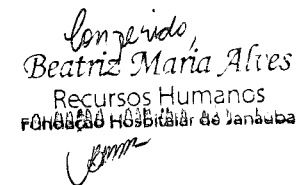 Conferido,
Beatriz Maria Alves
Recursos Humanos
Fundação Hospitalar de Janaúba